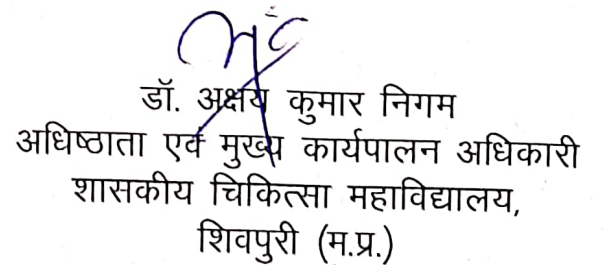 डॉ. अक्षय कुमार निगम
अधिष्ठाता एवं मुख्य कार्यपालन अधिकारी
शासकीय चिकित्सा महाविद्यालय,
शिवपुरी (म.प्र.)